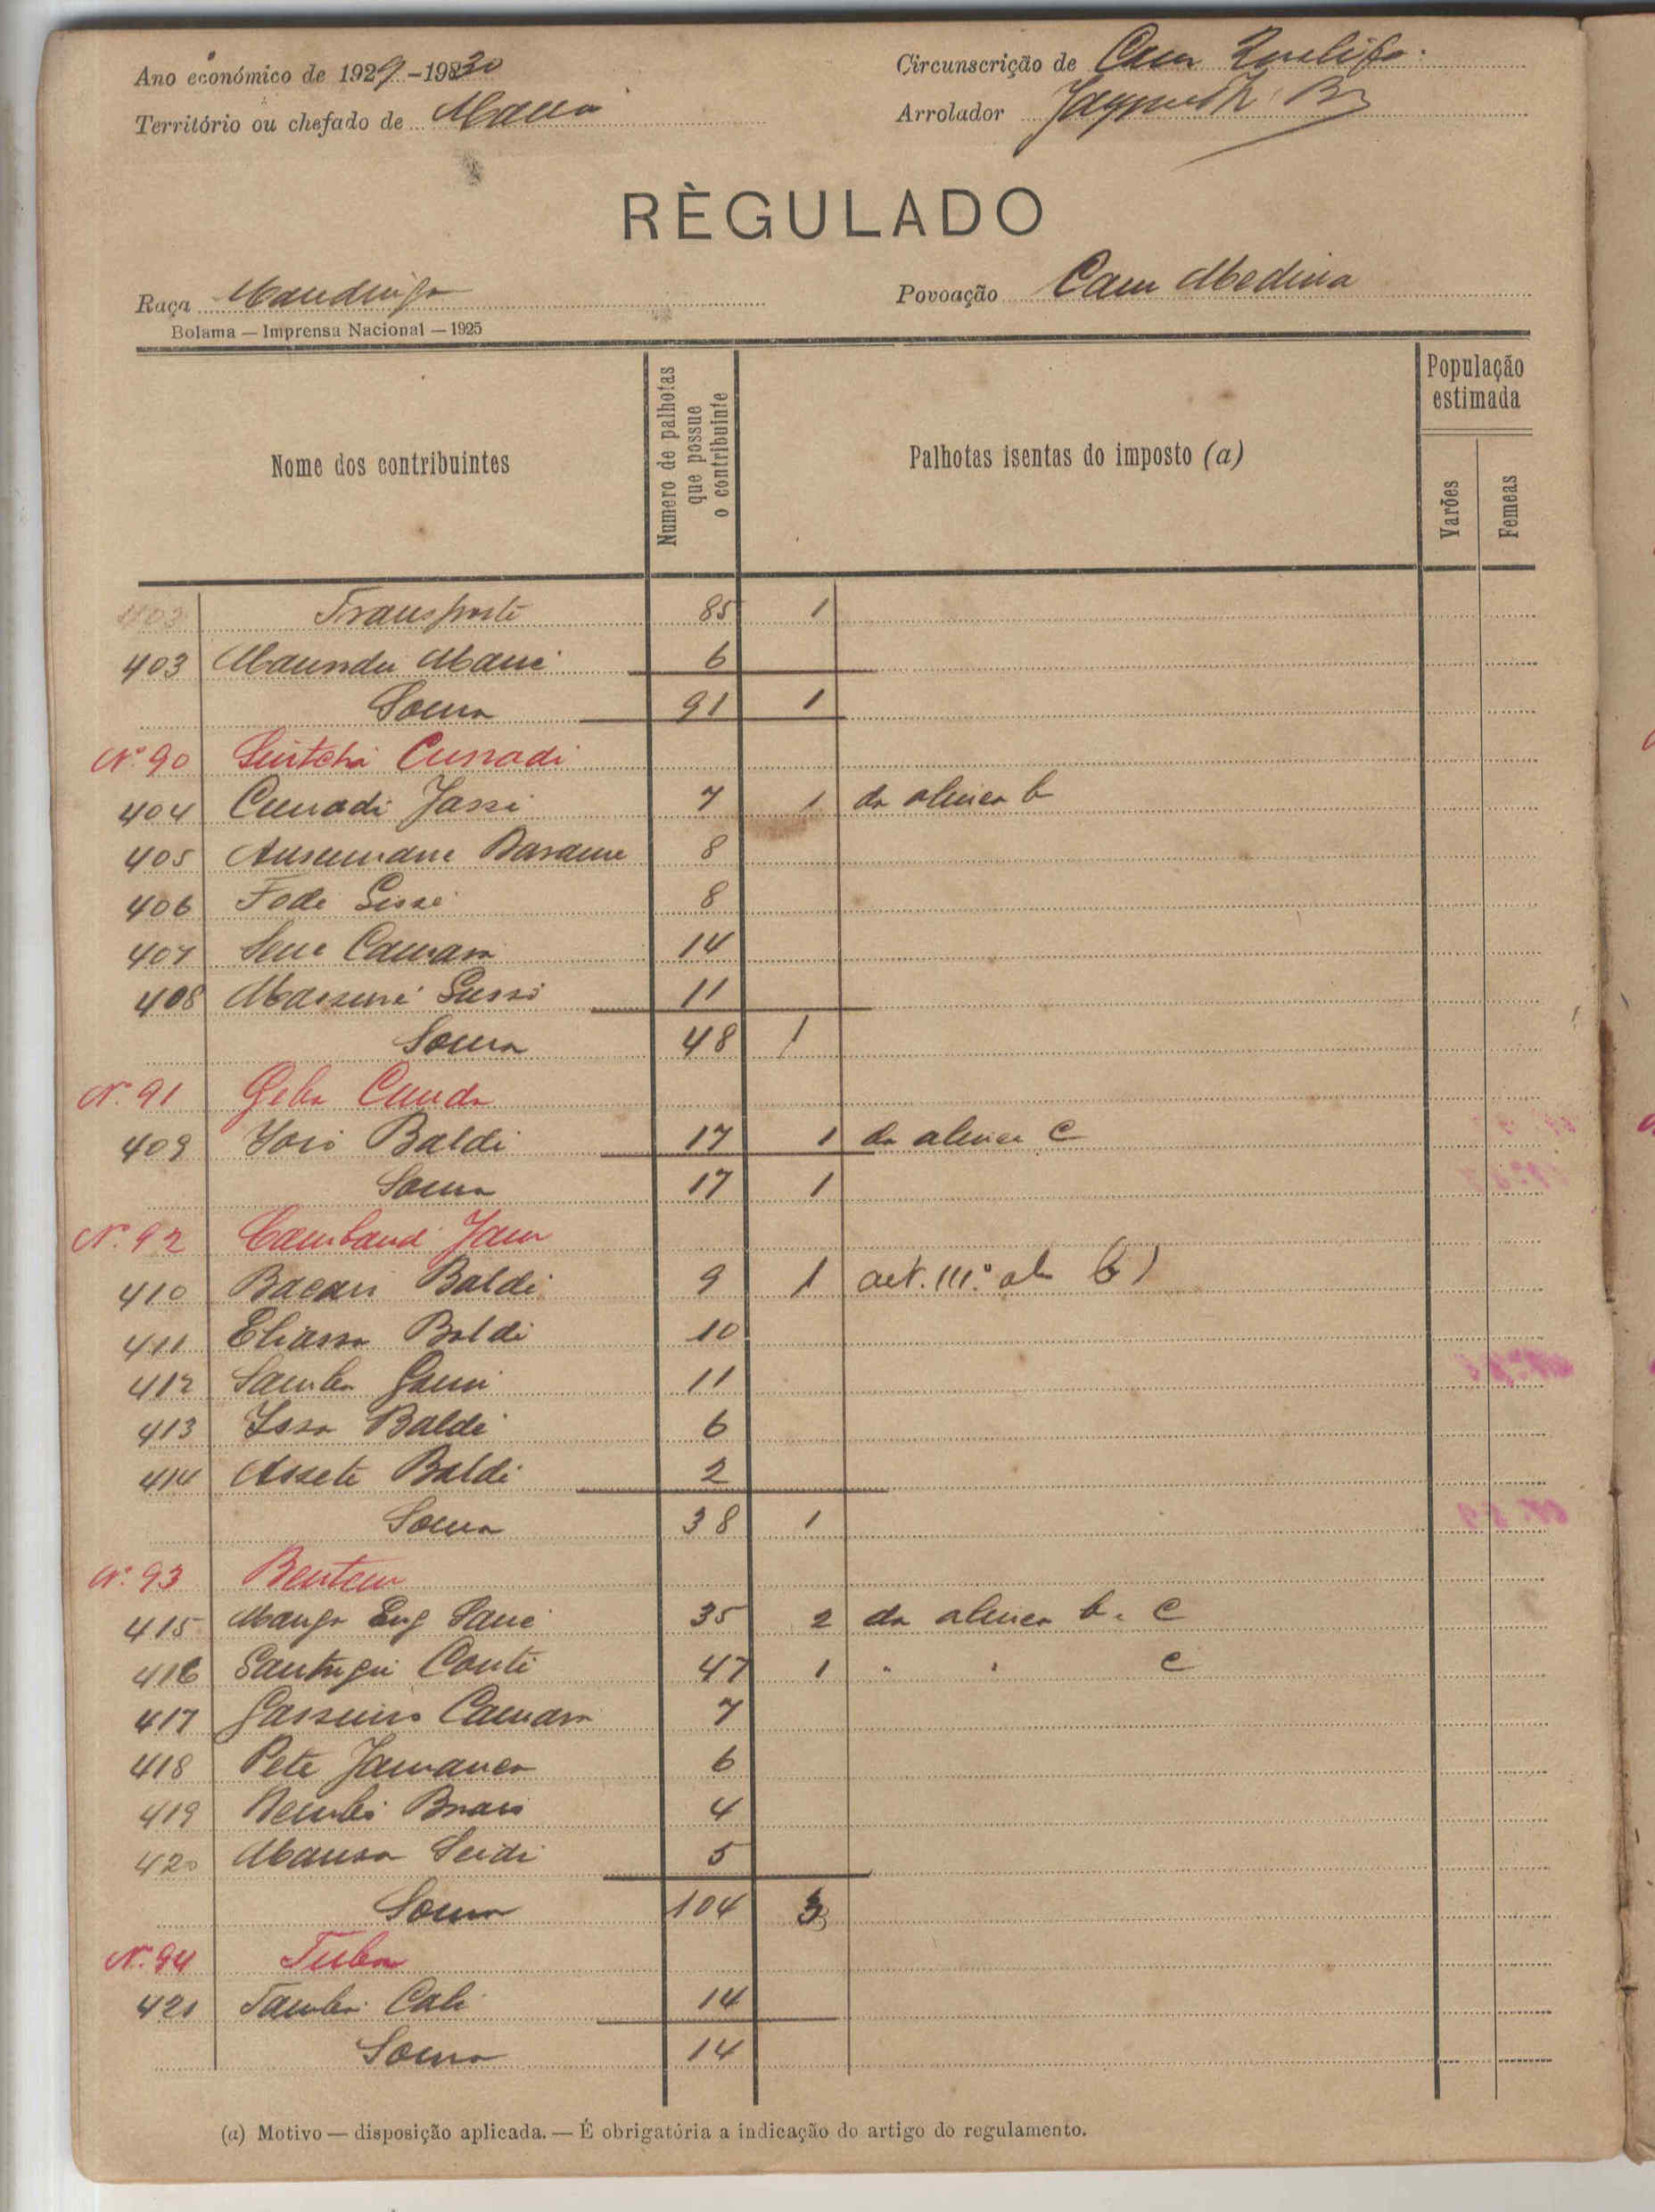 Ano económico de 1929-1930
Circunscrição de
Território ou chefado de Mana
Arrolador
RÈGULADO
Raça Mandinga
Povoação Cam Medina
Bolama — Imprensa Nacional — 1925
Nome dos contribuintes
Numero de palhotas que possue o contribuinte
Palhotas isentas do imposto (a)
População estimada
Varões
Femeas
403 Transporte 85 1
403 Maundu Mané 6
Soma 91 1
N.º 90 Cunadi
404 Cunadi Jassi 7 1 da alinea b
405 Ansumane 8
406 Fodé Sissé 8
407 Camara 14
408 11
Soma 48 1
N.º 91 Geba Cunda
409 Baldé 17 1 da alinea C
Soma 17 1
N.º 92 Jam
410 Bacari Baldé 9 1 art. 111.º al b)
411 Eliassa Baldé 10
412 Samba 11
413 Issa Baldé 6
414 Assete Baldé 2
Soma 38 1
N.º 93 Bentem
415 Sané 35 2 da alinea b. C
416 Santugui Conté 47 1 " " C
417 Camara 7
418 Pete Jamanca 6
419 4
420 Mansa Seidi 5
Soma 104 3
N.º 94 Tuba
421 Cali 14
Soma 14
(a) Motivo — disposição aplicada. — É obrigatória a indicação do artigo do regulamento.